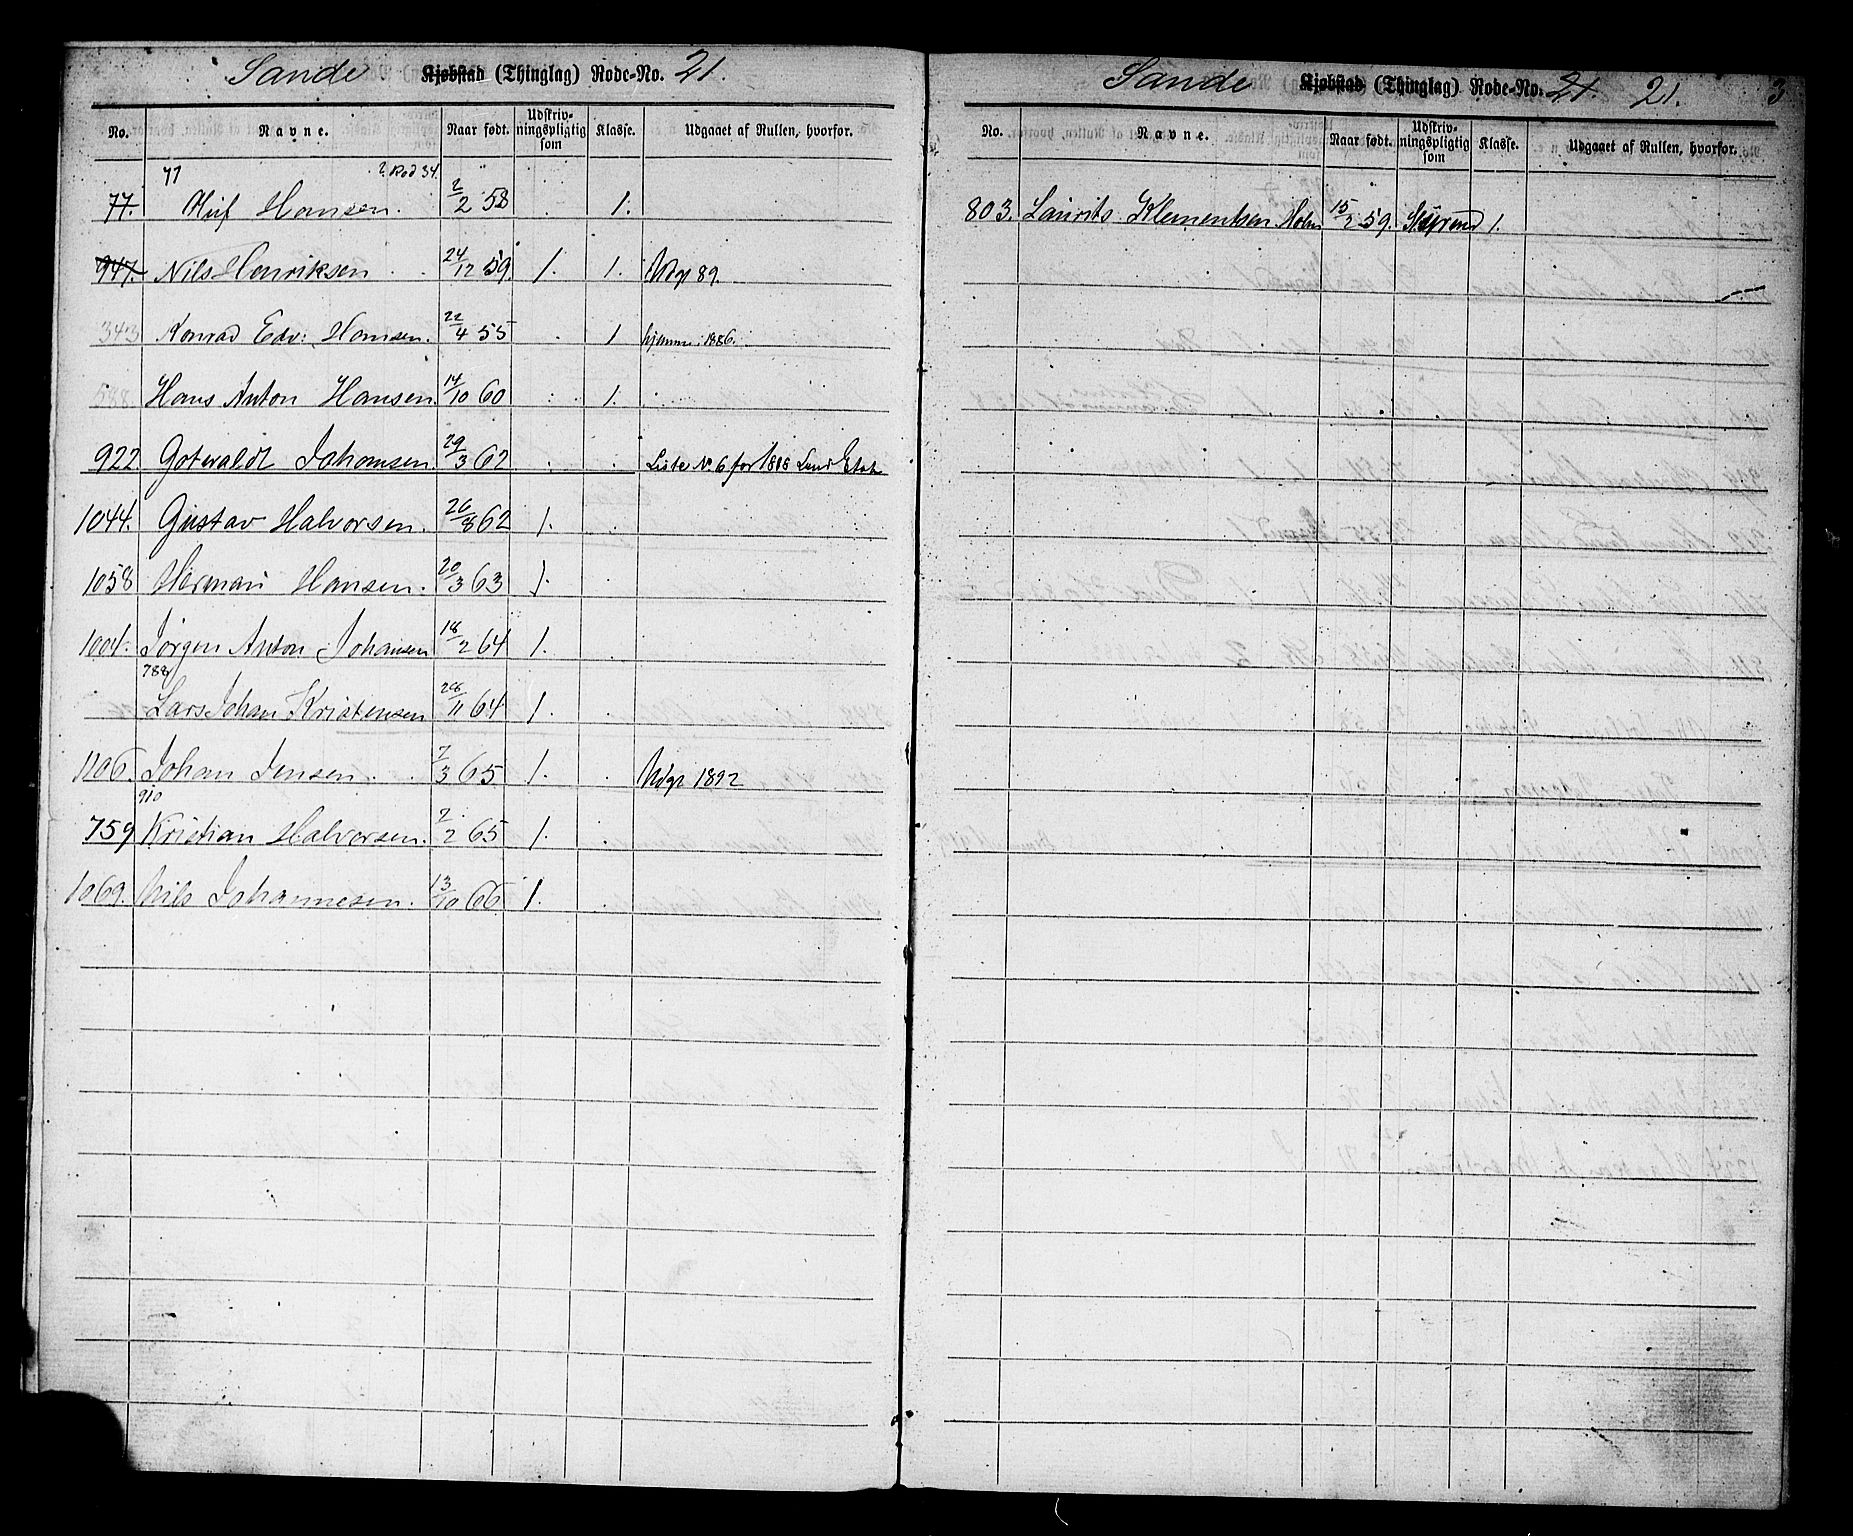 Sande Kjøbstad (Thinglag) Rode-No. 21.
No. Navne. Naar født. Udskrivningspligtig som Klasse. Udgaaet af Rullen, hvorfor.
77 2 Rod 34.
77. Oluf Hansen. 2/2 58 1.
947. Nils Henriksen 24/12 59. 1. 1. Udgr 89.
343 Konrad Edv: Hansen. 22/4 55 1 hjemme 1886.
588. Hans Anton Hansen. 14/10 60 1.
922 Gotwaldt Johansen. 29/3 62 Liste No 6 for 1888 Land Etat
1044. Gustav Halvorsen. 26/8 62 1.
1058 Herman Hansen. 20/3 63 1.
1004. Jørgen Anton Johansen 18/2 64 1.
788
Lars Johan Kristensen 28/11 64 1.
1106. Johan Jensen. 7/3 65 1. Udgr 1892
910
759 Kristian Halvorsen. 2/2 65 1.
1069. Nils Johannesen. 13/10 66 1.
Sande Kjøbstad (Thinglag) Rode-No. 21. 21. 3
No. Navne. Naar født. Udskrivningspligtig som Klasse. Udgaaet af Rullen, hvorfor.
803. Laurits Klementsen Holm 15/2 59. 1.